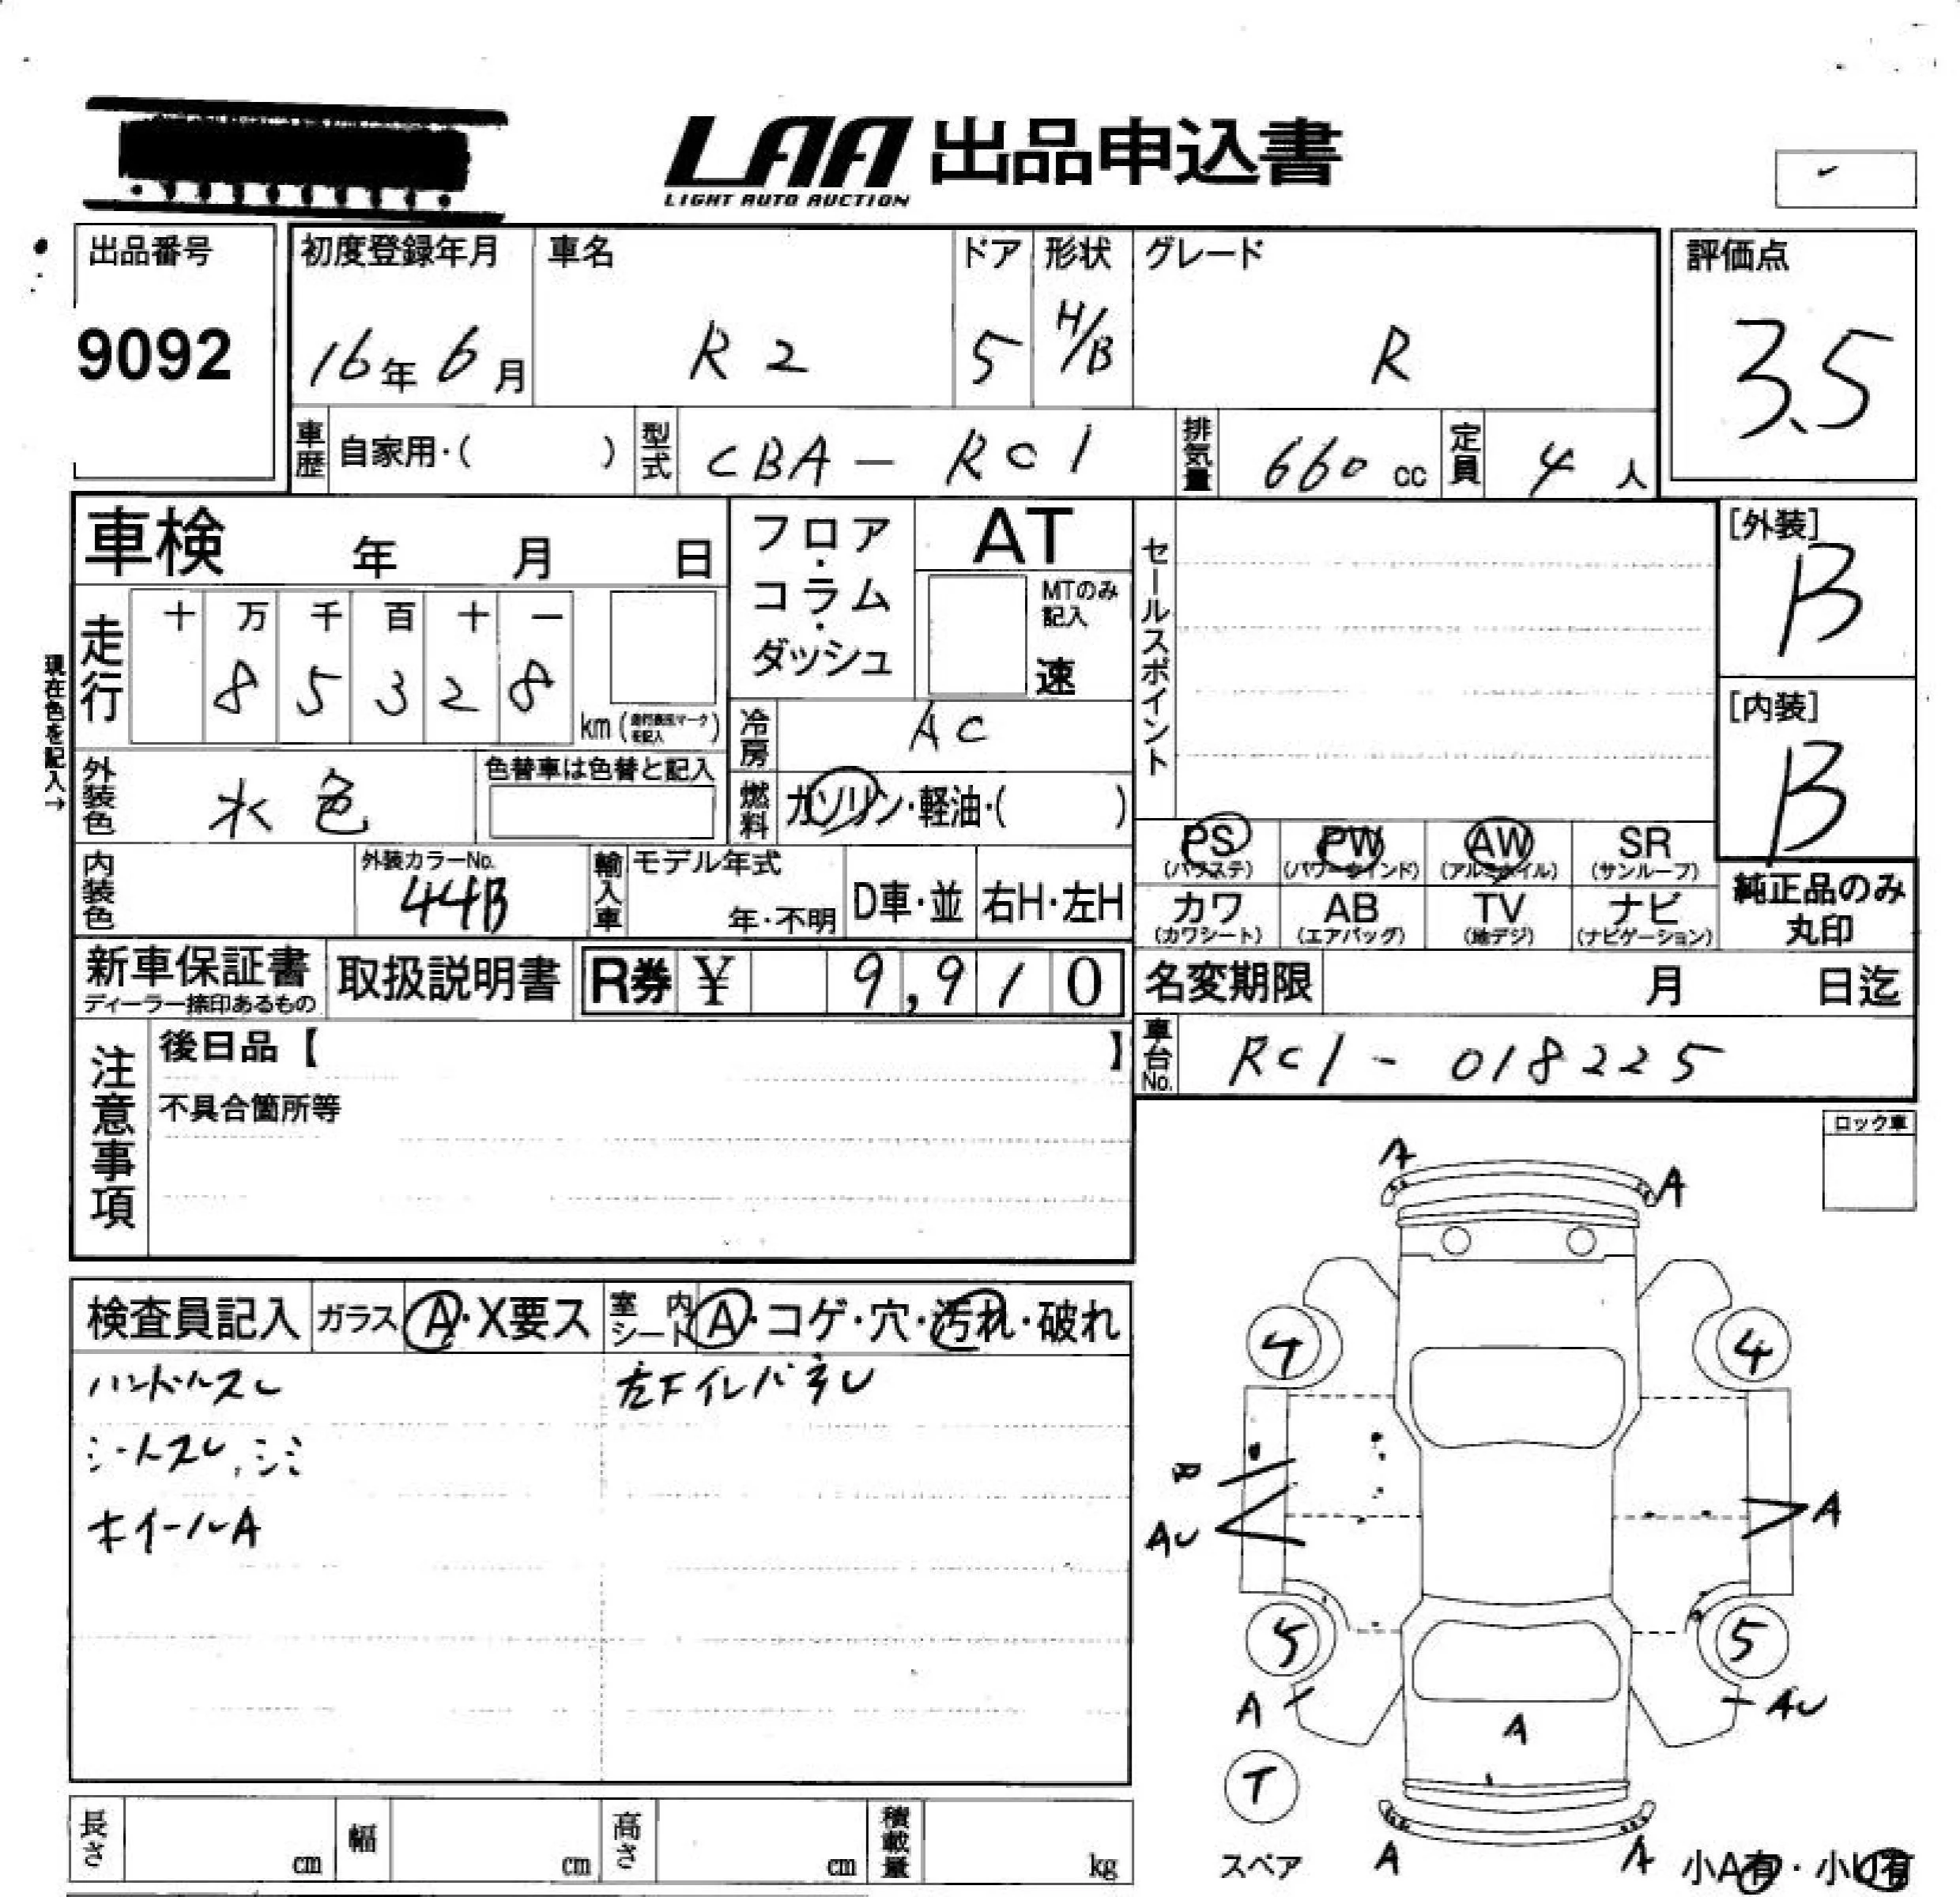 LAA 出品申込書
LIGHT AUTO AUCTION
出品番号
9092
初度登録年月
16年 6月
車名
R2
ドア
5
形状
H/B
グレード
R
評価点
3.5
車歴 自家用・( )
型式 CBA-RC1
排気量 660 cc
定員 4人
車検 年 月 日
フロア・コラム・ダッシュ
AT
MTのみ記入
速
セールスポイント
[外装]
B
[内装]
B
現在色を記入→
走行
十 万 千 百 十 一
8 5 3 2 8
km
冷房 AC
外装色 水色
色替車は色替と記入
燃料 ガソリン・軽油・( )
PS PW AW SR
(パワステ) (パワーウインド) (アルミホイル) (サンルーフ)
カワ AB TV ナビ
(カワシート) (エアバッグ) (地デジ) (ナビゲーション)
純正品のみ
丸印
内装色
外装カラーNo.
44B
輸入車
モデル年式
年・不明
D車・並
右H・左H
新車保証書
ディーラー捺印あるもの
取扱説明書
R券 ¥ 9,910
名変期限 月 日迄
車台No. RC1-018225
注意事項
後日品【 】
不具合箇所等
ロック車
検査員記入 ガラス A・X要ス 室内シート A・コゲ・穴・汚れ・破れ
ハンドルスレ
シートスレ、シミ
ホイールA
左下イレバネU
A
A
4
4
AU
A
5
5
A
AU
A
T
スペア
A
A
小A有・小U有
長さ cm
幅 cm
高さ cm
積載量 kg